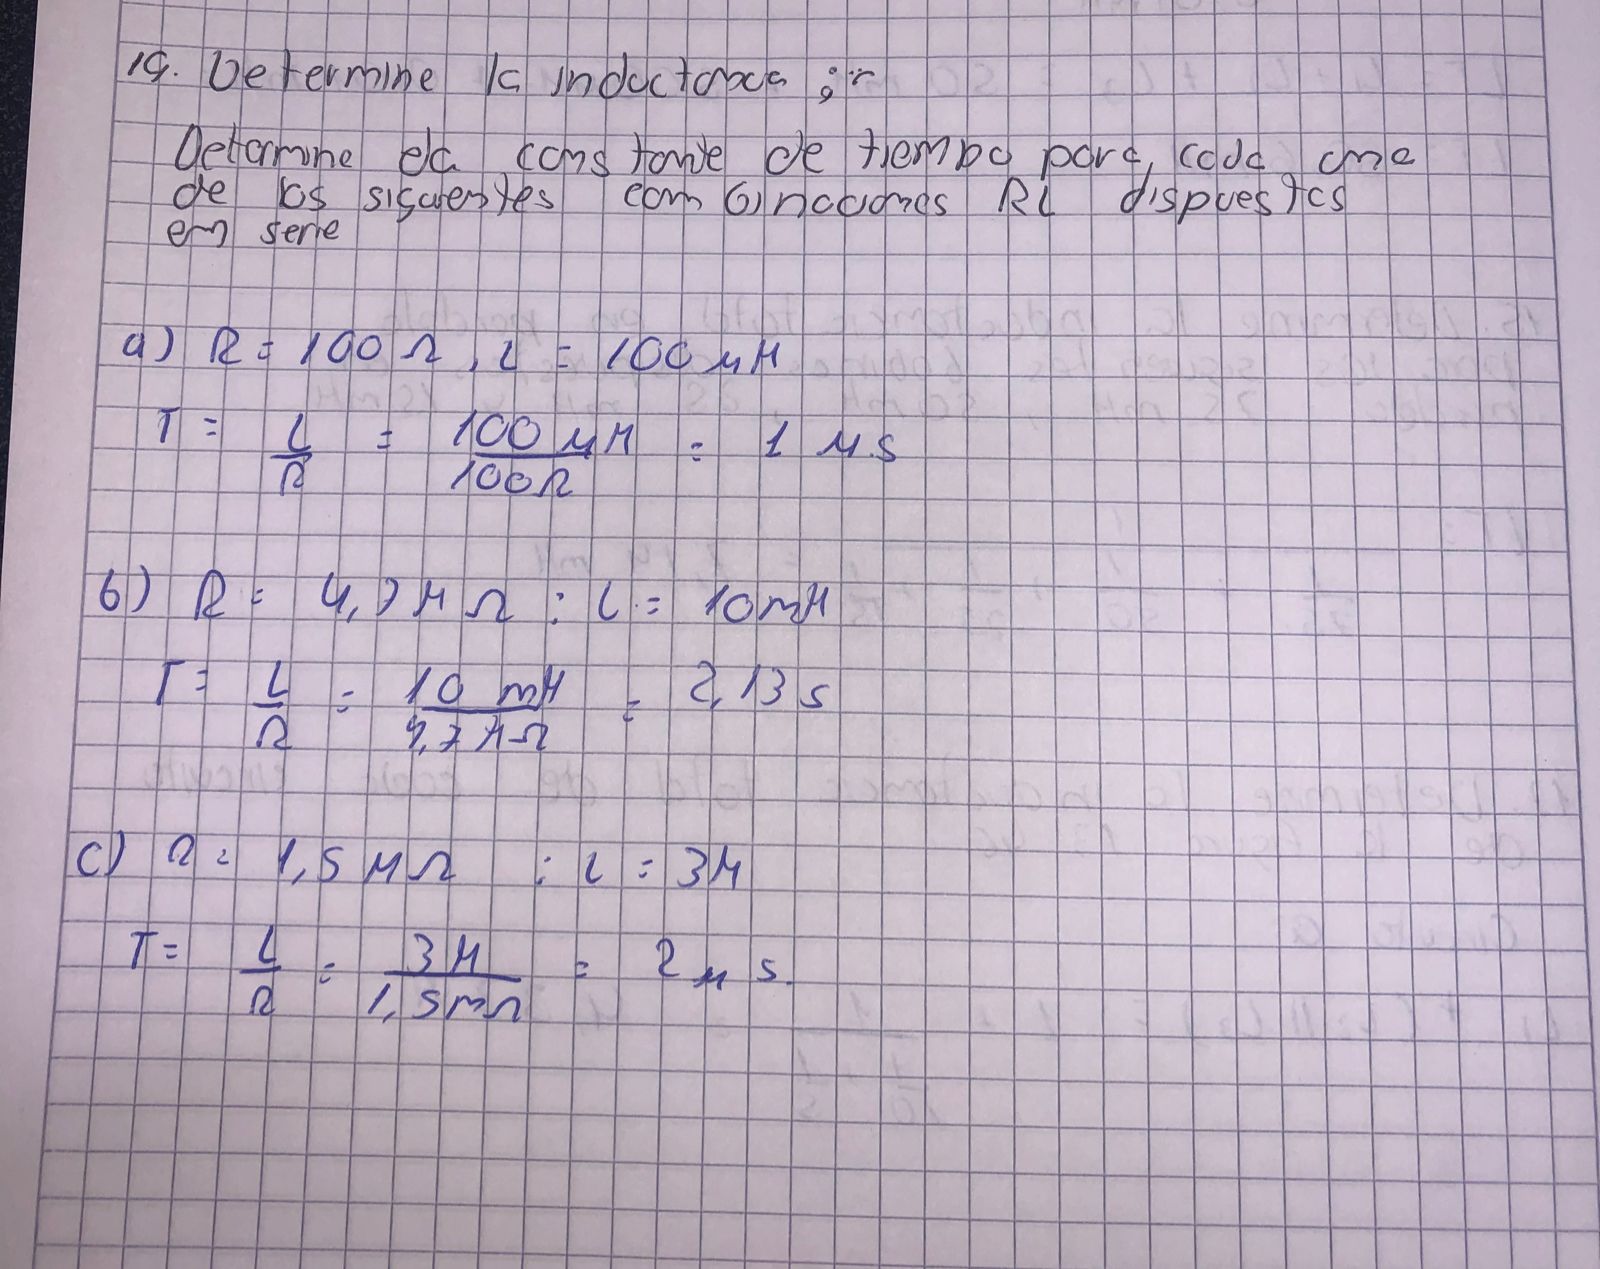 19. Determine la inductancia ;r
Determine ela constante de tiempo para cada una
de los siguientes combinaciones RL dispuestas
en serie
a) R = 100 Ω , L = 100 μH
T = L/R = 100 μH / 100 Ω = 1 μs
b) R = 4,7 M Ω : L = 10 mH
T = L/R = 10 mH / 4,7 MΩ = 2,13 s
c) R = 1,5 M Ω : L = 3H
T = L/R = 3 H / 1,5 mΩ = 2 μ s.